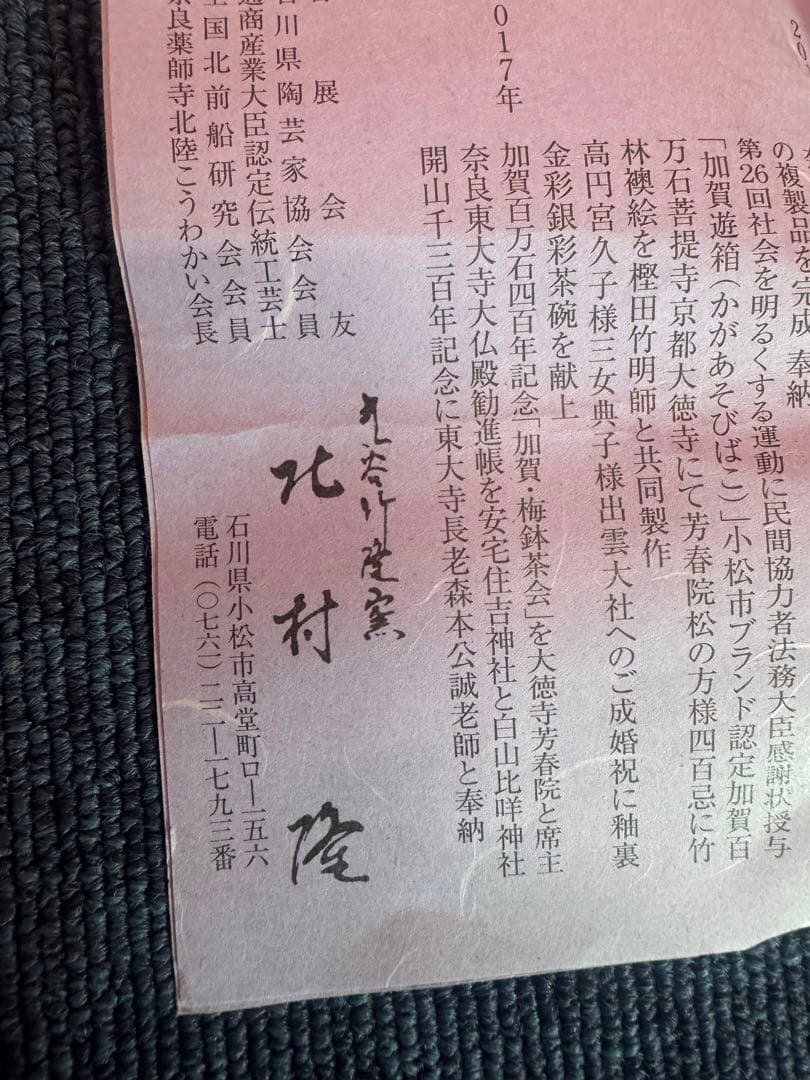 の複製品を完成 奉納
第26回社会を明るくする運動に民間協力者法務大臣感謝状授与
「加賀遊箱(かがあそびばこ)」小松市ブランド認定加賀百
万石菩提寺京都大徳寺にて芳春院松の方様四百忌に竹
林襖絵を樫田竹明師と共同製作
高円宮久子様三女典子様出雲大社へのご成婚祝に釉裏
金彩銀彩茶碗を献上
017年
加賀百万石四百年記念「加賀・梅鉢茶会」を大徳寺芳春院と席主
奈良東大寺大仏殿勧進帳を安宅住吉神社と白山比咩神社
開山千三百年記念に東大寺長老森本公誠老師と奉納
展 会 友
川県陶芸家協会会員
通商産業大臣認定伝統工芸士
国北前船研究会会員
良薬師寺北陸こうわかい会長
九谷作隆窯
北村 隆
石川県小松市高堂町ロ一一五六
電話(〇七六一)二二一一七九三番